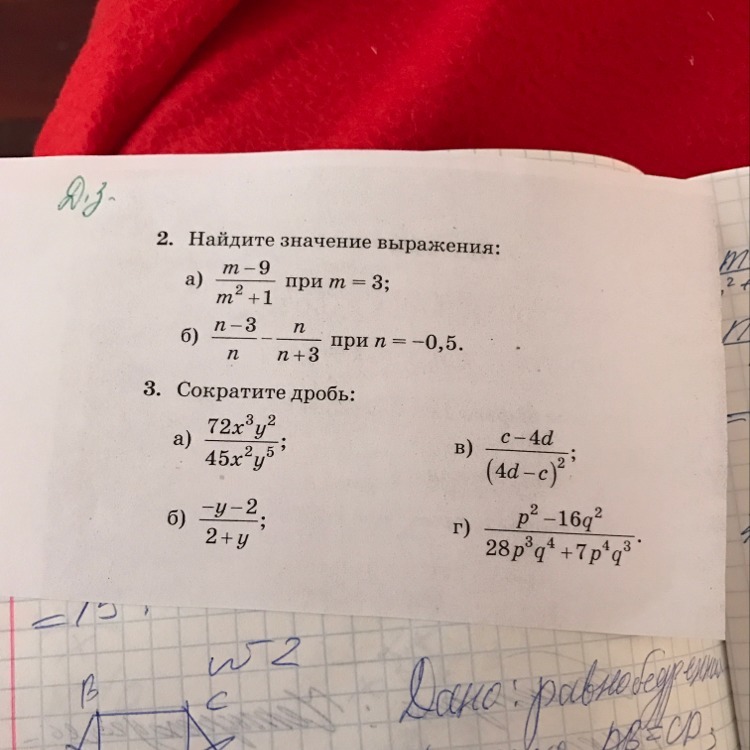 Д.з.
2. Найдите значение выражения:
а) \frac{m-9}{m^2+1} при m = 3;
б) \frac{n-3}{n} - \frac{n}{n+3} при n = -0,5.
3. Сократите дробь:
а) \frac{72x^3y^2}{45x^2y^5};
в) \frac{c-4d}{(4d-c)^2};
б) \frac{-y-2}{2+y};
г) \frac{p^2-16q^2}{28p^3q^4+7p^4q^3}.
= 15
№2
B C
Дано: равнобедренн
PB=CP,